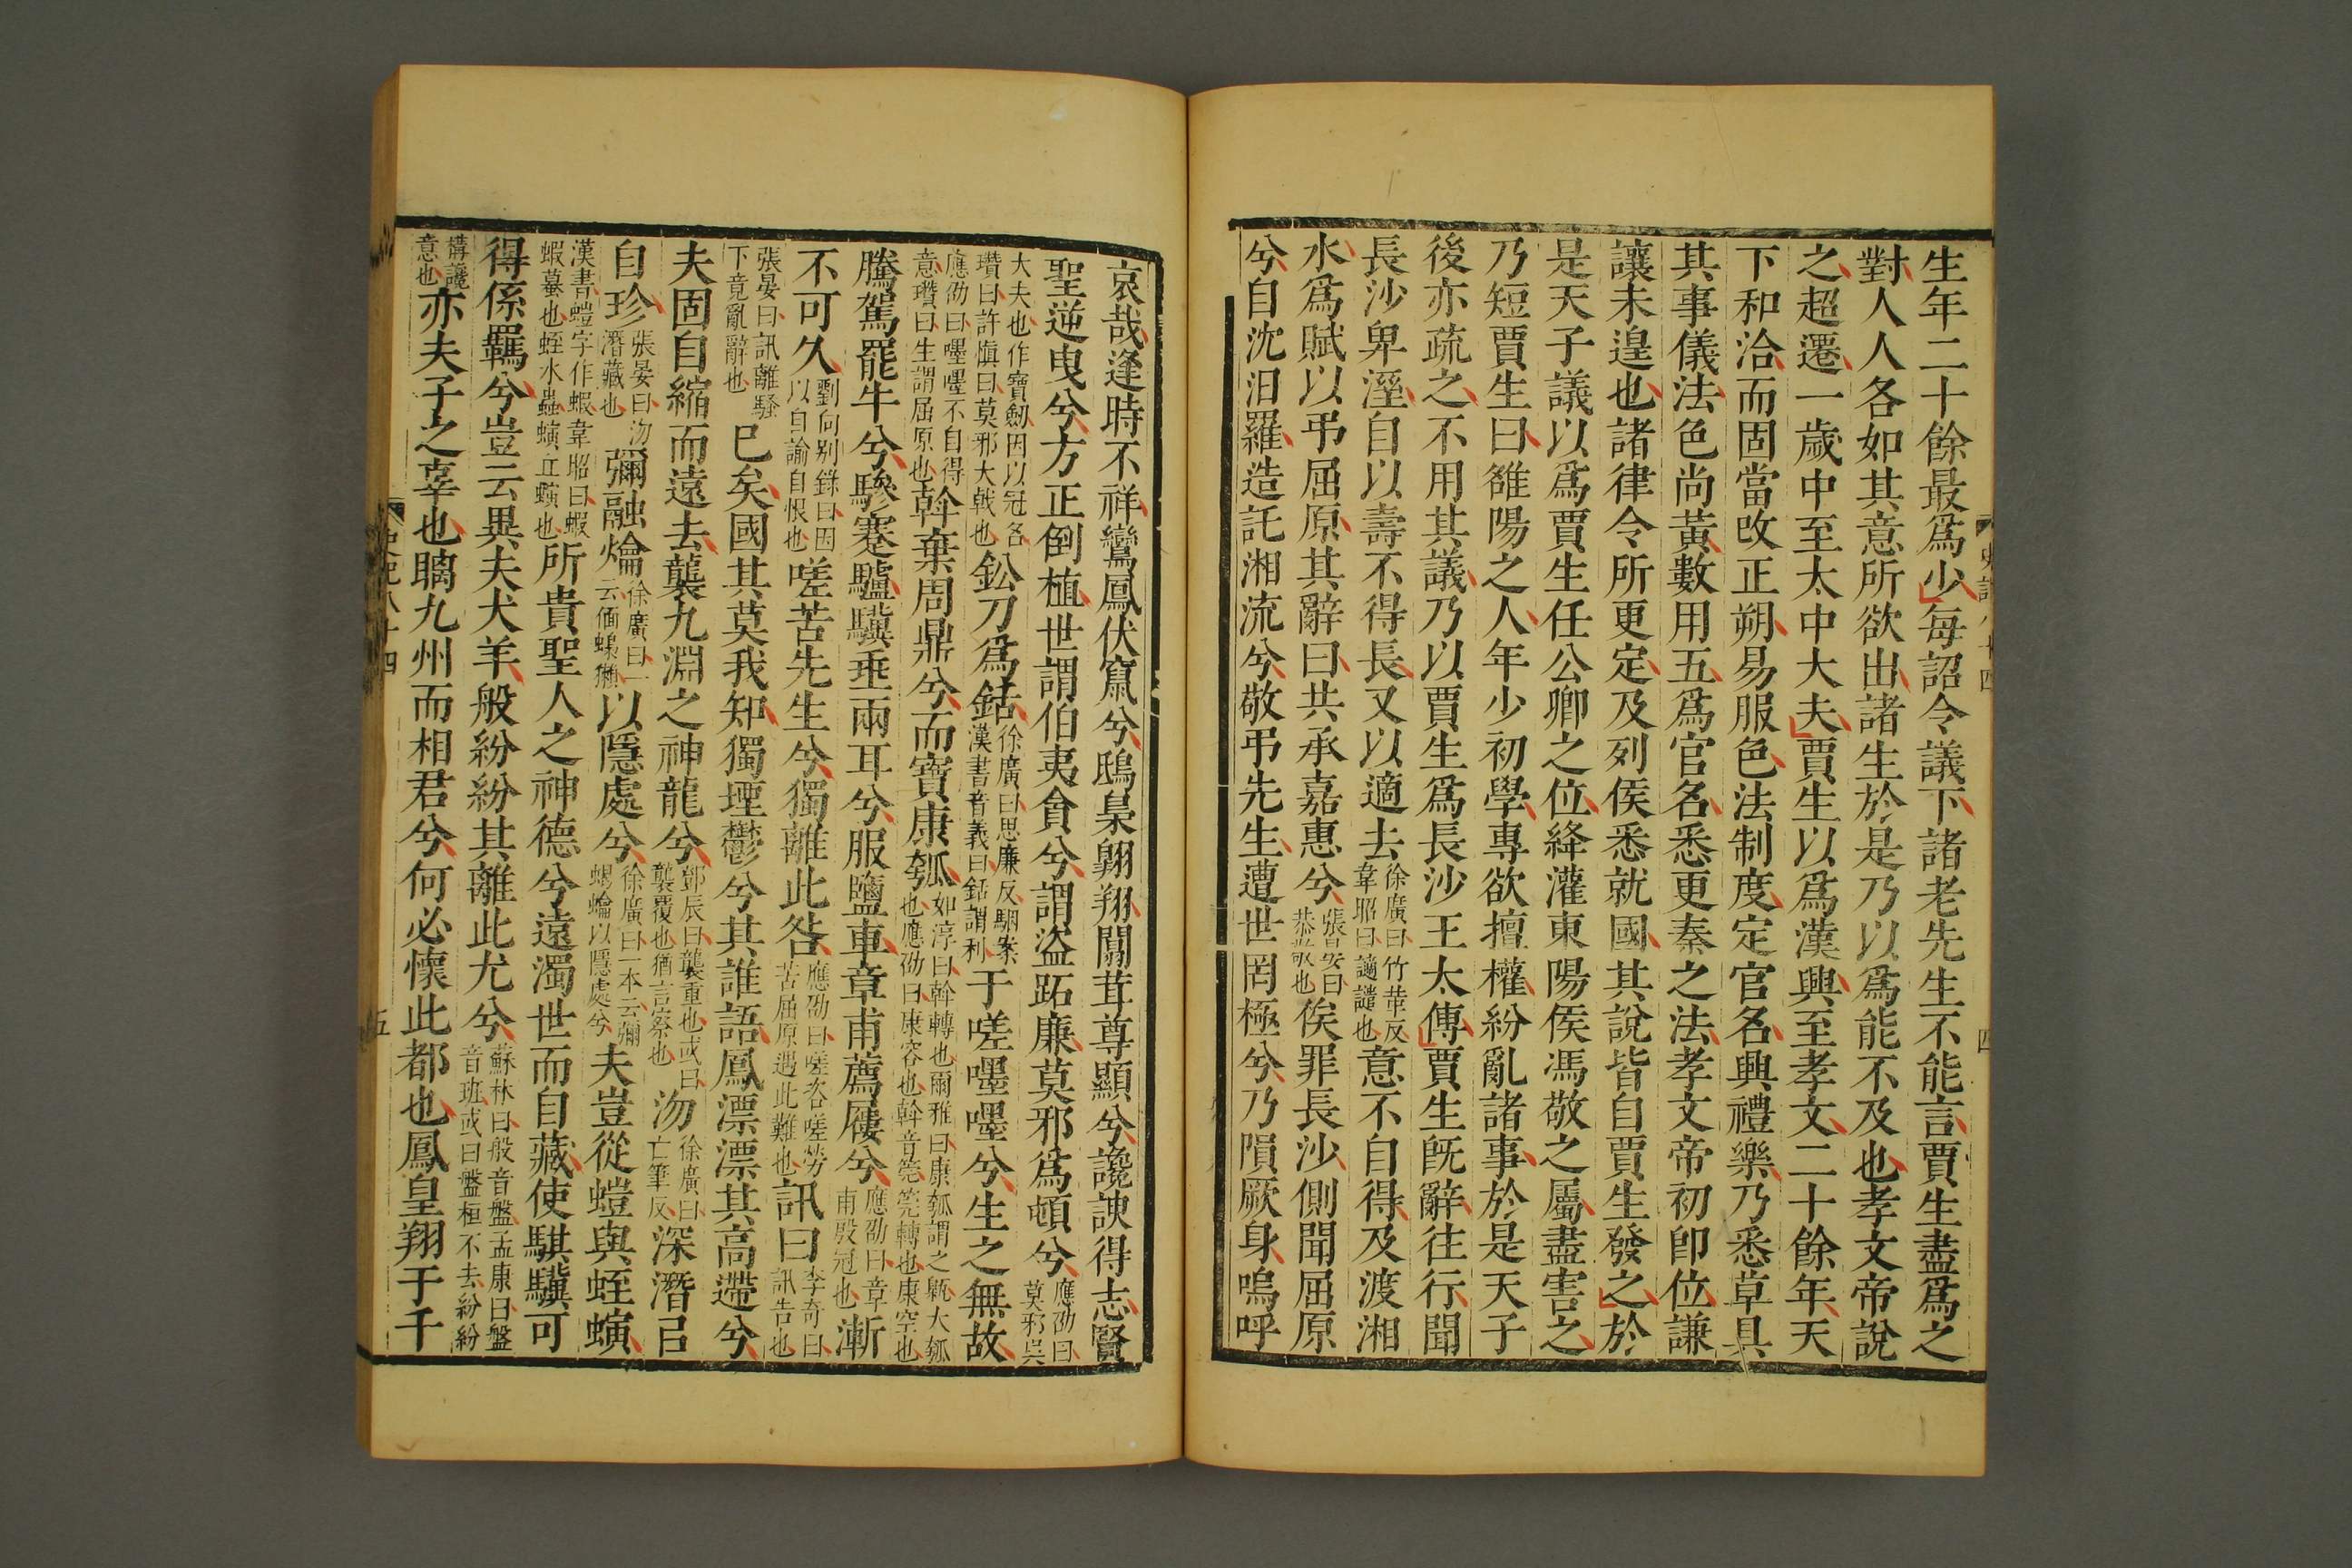 生年二十餘最爲少每詔令議下諸老先生不能言賈生盡爲之
對人人各如其意所欲出諸生於是乃以爲能不及也孝文帝說
之超遷一歲中至太中大夫賈生以爲漢興至孝文二十餘年天
下和洽而固當改正朔易服色法制度定官名興禮樂乃悉草具
其事儀法色尚黃數用五爲官名悉更秦之法孝文帝初卽位謙
讓未遑也諸律令所更定及列侯悉就國其說皆自賈生發之於
是天子議以爲賈生任公卿之位絳灌東陽侯馮敬之屬盡害之
乃短賈生曰雒陽之人年少初學專欲擅權紛亂諸事於是天子
後亦疏之不用其議乃以賈生爲長沙王太傅賈生旣辭往行聞
長沙卑溼自以壽不得長又以適去徐廣曰竹革反韋昭曰讁譴也意不自得及渡湘
水爲賦以弔屈原其辭曰共承嘉惠兮張晏曰恭敬也俟罪長沙側聞屈原
兮自沈汨羅造託湘流兮敬弔先生遭世罔極兮乃隕厥身嗚呼
四
哀哉逢時不祥鸞鳳伏竄兮鴟梟翺翔闒茸尊顯兮讒諛得志賢
聖逆曳兮方正倒植世謂伯夷貪兮謂盜跖廉莫邪爲頓兮應劭曰莫邪吳
大夫也作寶劒因以冠名瓚曰許愼曰莫邪大戟也鈆刀爲銛徐廣曰思廉反駰案漢書音義曰銛謂利于嗟嚜嚜兮生之無故
應劭曰嚜嚜不自得意瓚曰生謂屈原也斡棄周鼎兮而寶康瓠如淳曰斡轉也爾雅曰康瓠謂之甈大瓠也應劭曰康容也斡音筦筦轉也康空也
騰駕罷牛兮驂蹇驢驥垂兩耳兮服鹽車章甫薦屨兮應劭曰章甫殷冠也漸
不可久劉向别錄曰因以自諭自恨也嗟苦先生兮獨離此咎應劭曰嗟咨嗟勞苦屈原遇此難也訊曰李奇曰訊告也
張晏曰訊離騷下竟亂辭也已矣國其莫我知獨堙鬱兮其誰語鳳漂漂其高遰兮
夫固自縮而遠去襲九淵之神龍兮鄧辰曰襲重也或曰襲覆也猶言察也沕徐廣曰亡筆反深潛㠯
自珍張晏曰沕潛藏也彌融爚徐廣曰一云偭蟂獺以隱處兮徐廣曰一本云彌蝎蜦以隱處兮夫豈從螘與蛭螾
漢書螘字作蝦韋昭曰蝦蝦蟇也蛭水蟲螾丘螾也所貴聖人之神德兮遠濁世而自藏使騏驥可
得係羈兮豈云異夫犬羊般紛紛其離此尤兮蘇林曰般音盤孟康曰盤音班或曰盤桓不去紛紛
構讒意也亦夫子之辜也瞝九州而相君兮何必懷此都也鳳皇翔于千
史記八十四
五